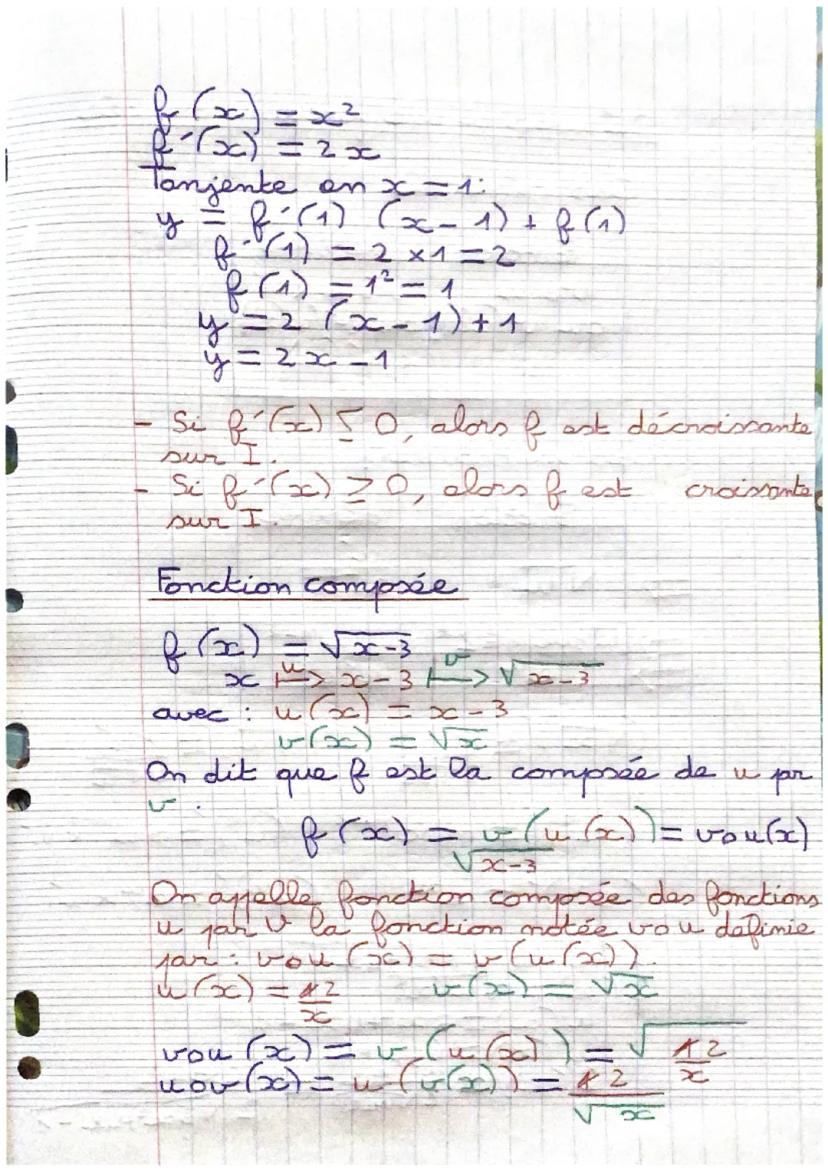 f(x) = x²
f'(x) = 2x
Tanjente en x = 1:
y = f'(1) (x - 1) + f(1)
f'(1) = 2 × 1 = 2
f(1) = 1² = 1
y = 2 (x - 1) + 1
y = 2x - 1
- Si f'(x) ≤ 0, alors f est décroissante
sur I.
- Si f'(x) ≥ 0, alors f est croissante
sur I.
Fonction composée
f(x) = √(x-3)
x ↦ᵘ x - 3 ↦ᵛ √(x-3)
avec : u(x) = x - 3
v(x) = √x
On dit que f est la composée de u par
v.
f(x) = v(u(x)) = vou(x)
√(x-3)
On appelle fonction composée des fonctions
u par v la fonction notée vou définie
par : vou(x) = v(u(x)).
u(x) = 2/x v(x) = √x
vou(x) = v(u(x)) = √(2/x)
uov(x) = u(v(x)) = 2/√x